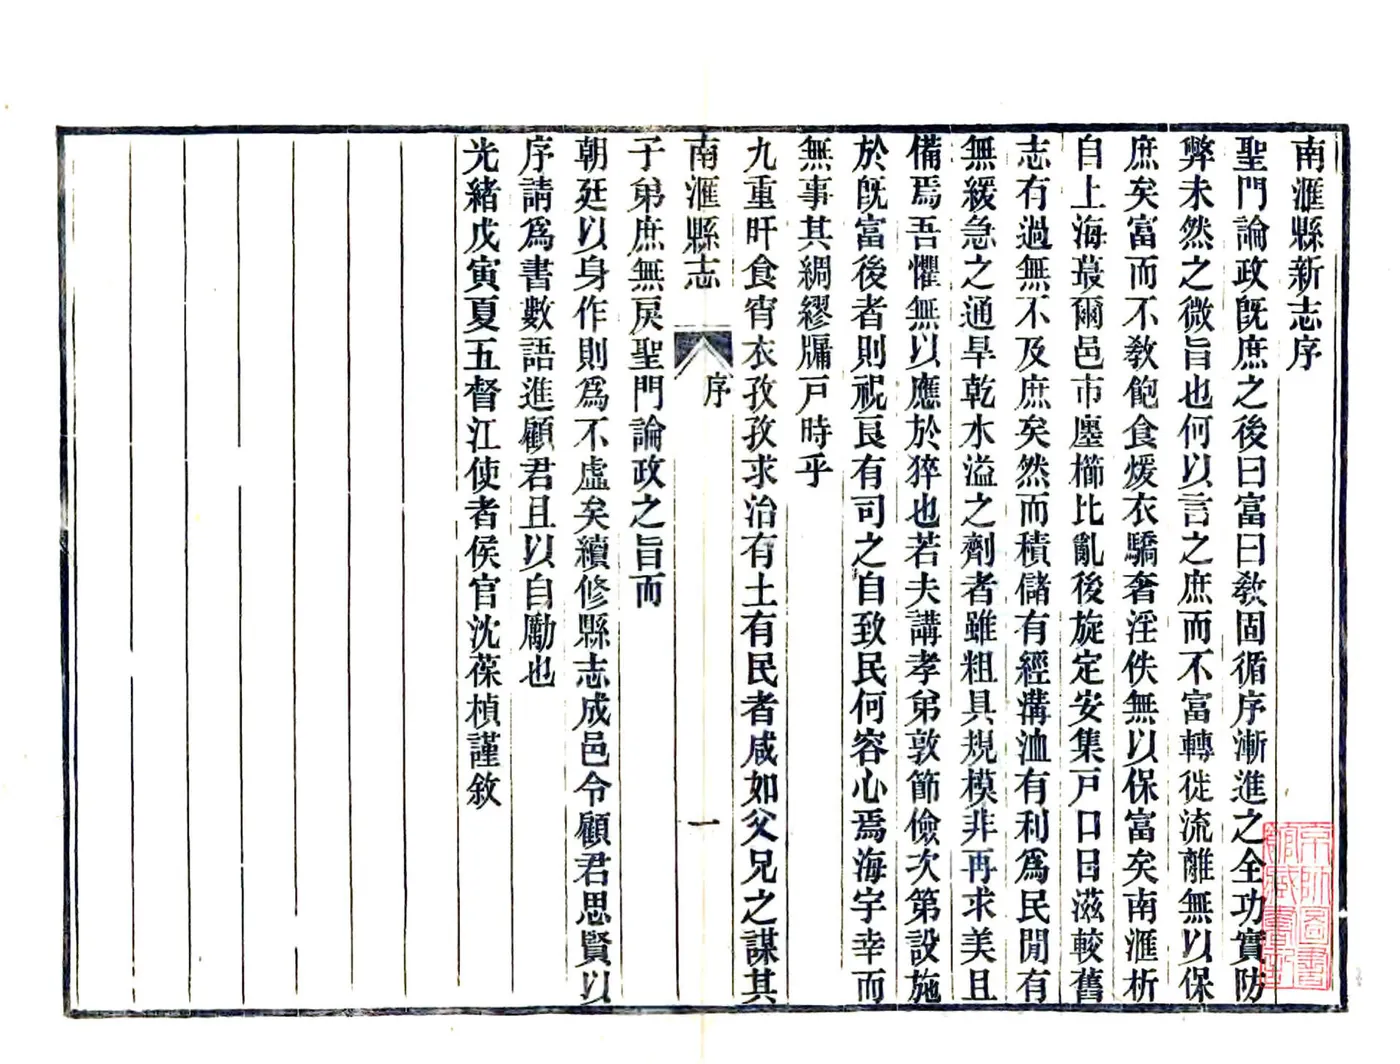 南滙縣新志序
聖門論政旣庶之後曰富曰敎固循序漸進之全功實防
弊未然之微旨也何以言之庶而不富轉徙流離無以保
庶矣富而不敎飽食煖衣驕奢淫佚無以保富矣南滙析
自上海蕞爾邑市廛櫛比亂後旋定安集戸口日滋較舊
志有過無不及庶矣然而積儲有經溝洫有利爲民閒有
無緩急之通旱乾水溢之劑者雖粗具規模非再求美且
備焉吾懼無以應於猝也若夫講孝弟敦節儉次第設施
於旣富後者則視良有司之自致民何容心焉海宇幸而
無事其綢繆牖戸時乎
九重旰食宵衣孜孜求治有土有民者咸如父兄之謀其
南滙縣志
序
一
子弟庶無戾聖門論政之旨而
朝廷以身作則爲不虛矣續修縣志成邑令顧君思賢以
序請爲書數語進顧君且以自勵也
光緒戊寅夏五督江使者侯官沈葆楨謹敘
京師圖書
館藏書記